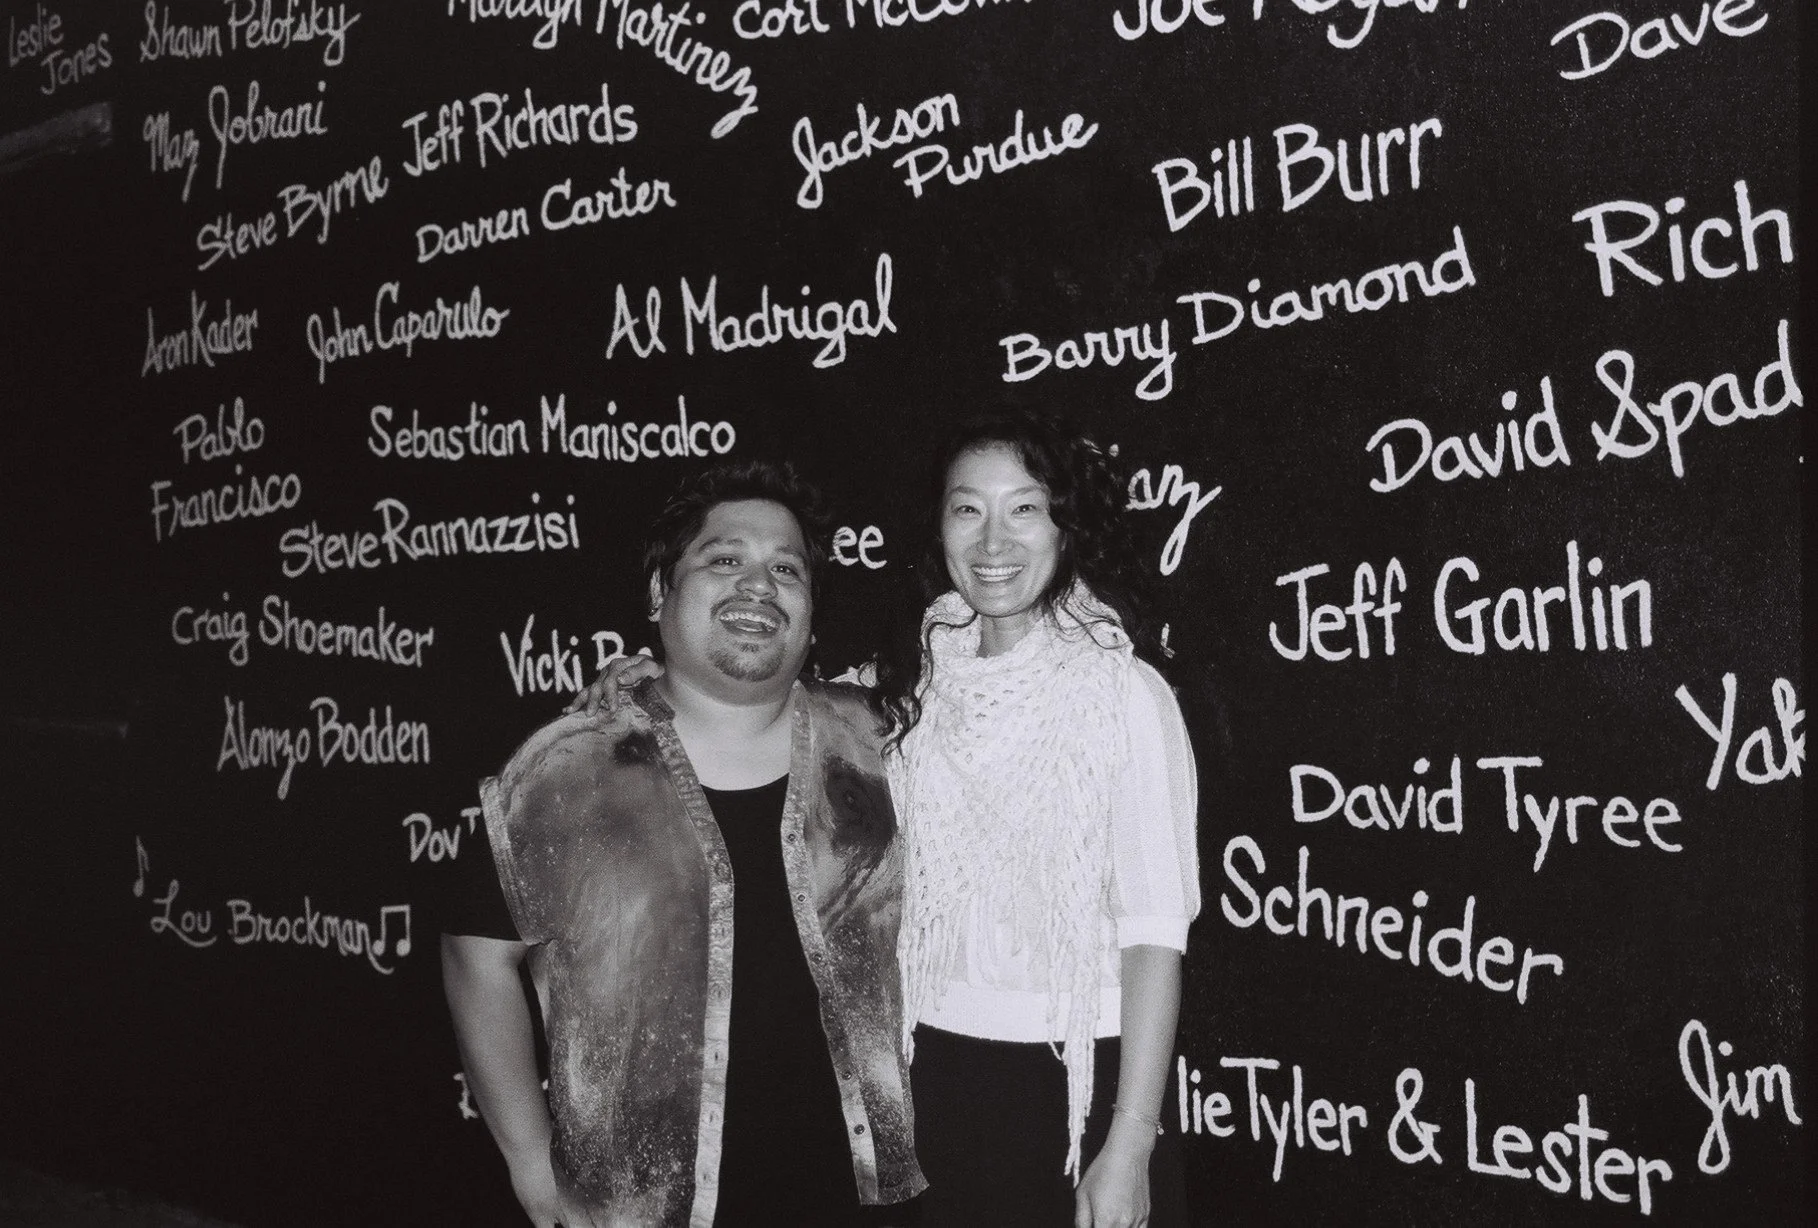 Leslie
Jones
Shawn Pelofsky
Marilyn Martinez
Cort
Joe
Dave
Maz Jobrani
Jeff Richards
Jackson
Purdue
Bill Burr
Steve Byrne
Darren Carter
Rich
Aron Kader
John Caparulo
Al Madrigal
Barry Diamond
Pablo
Francisco
Sebastian Maniscalco
David Spad
az
Steve Rannazzisi
ee
Jeff Garlin
Craig Shoemaker
Vicki
Yak
Alonzo Bodden
David Tyree
Dov T
Schneider
Lou Brockman
Jim
lie Tyler & Lester